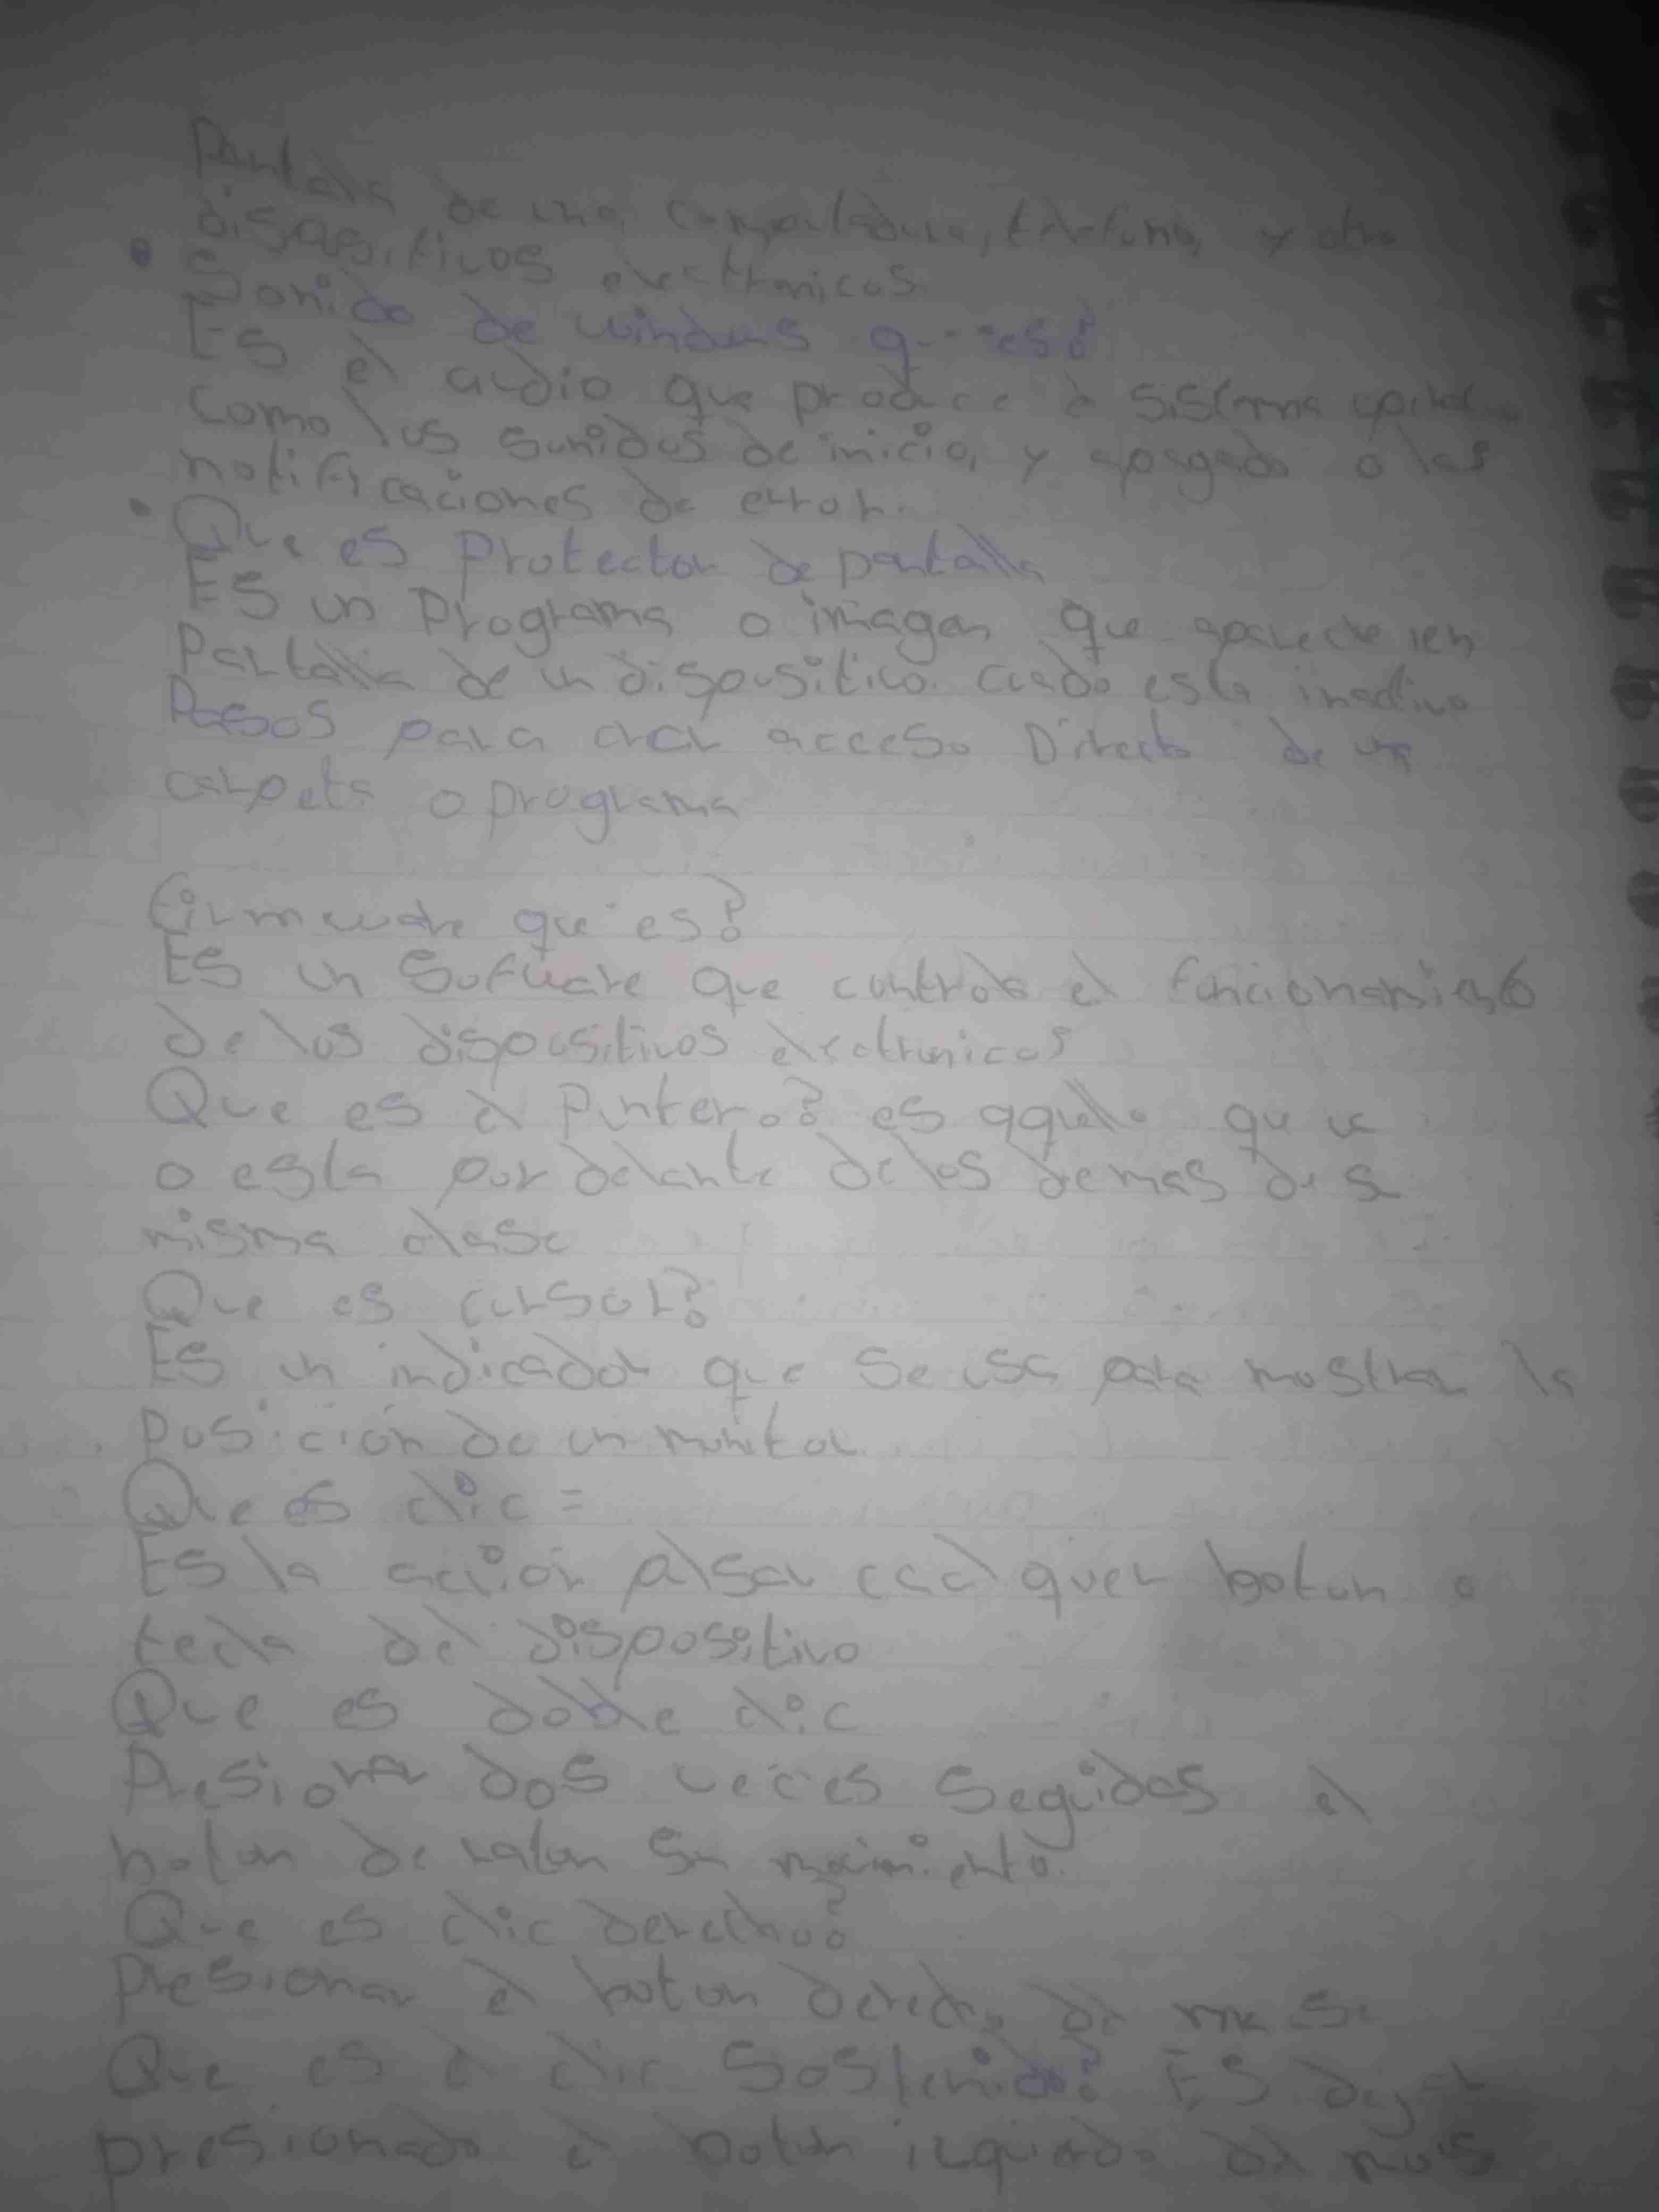 Pantalla de una computadora, telefono, y otro
dispositicos electronicos
Sonido de windus que es?
Es el audio que produce el sistema
como los sunidos de inicio, y apagado o las
notificaciones de error.
Que es protector de pantalla
Es un programa o imagen que aparece en
Pantalla de un dispositivo. cuado esta inactivo
Pasos para crear acceso Directo de una
carpeta o programa
firmware que es?
Es un Sofware que controla el funcionamiento
de los dispositivos electrunicos
Que es el Puntero? es aquello que va
o esta por delante de los demas de su
misma clase
Que es cursor?
Es un indicador que se usa para mostrar la
posición de un monitor
Que es clic =
Es la acción pulsar cualquer boton o
tecla del dispositivo
Que es doble clic
Presionar dos veces seguidas el
boton de raton
Que es clic derecho?
Presionar el boton derecho del
Que es el clic Sostenido? Es dejar
presionado el boton izquierdo del